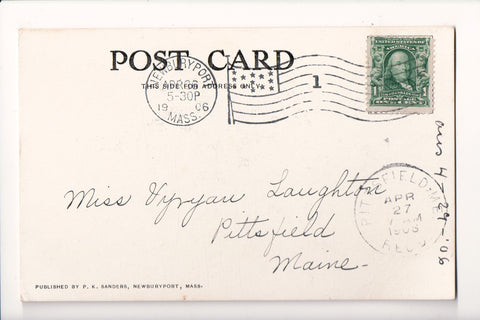 POST CARD
THIS SIDE FOR ADDRESS ONLY
NEWBURYPORT
5-30P
19 06
MASS.
1
UNITED STATES OF AMERICA
POSTAGE
1 ONE CENT 1
Miss Vyryan Laughton
Pittsfield
Maine-
PITTSFIELD
APR
27
M
1906
REC'D
4-29-'06
PUBLISHED BY P. K. SANDERS, NEWBURYPORT, MASS.